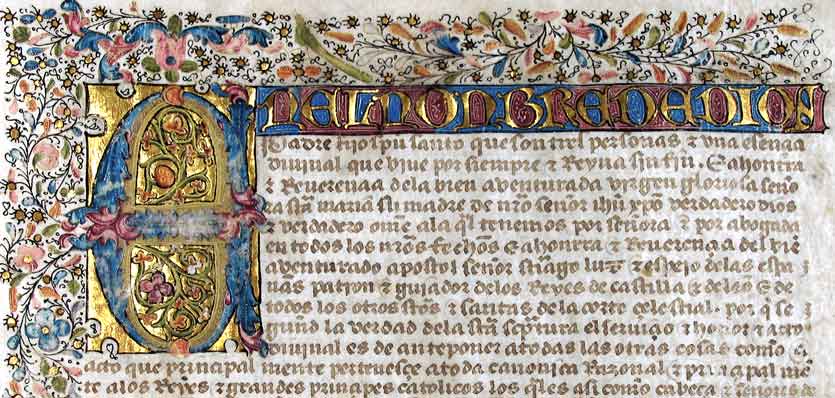 EN EL NONBRE DE DIOS
padre fijo spũ santo que son tres personas & vna esençia
diuinal que biue por siempre & Reyna sin fin. E a honrra
& Reuerençia dela bien auenturada virgen gloriosa seño
a sta maria su madre de nr̃o señor ihũ xp̃o verdadero dios
& verdadero om̃e ala q̃l tenemos por señora & por abogada
en todos los nr̃os fechos E a honrra & Reuerençia del biē
aventurado apostol señor sãtiago luz & espejo delas espa
ñas patron & guiador delos Reyes de castilla & de leon E de
todos los otros stõs & santas dela corte çelestial. por q̃ se
gund la verdad dela stã scp̃tura el seruiçio & honor & acto
diuinal es de anteponer a todas las otras cosas como
acto que principal mente pertenesçe a toda canonica Razonal & prinçipal mē
te alos Reyes & grandes prinçipes catolicos los q̃les asi como cabeça & señores de